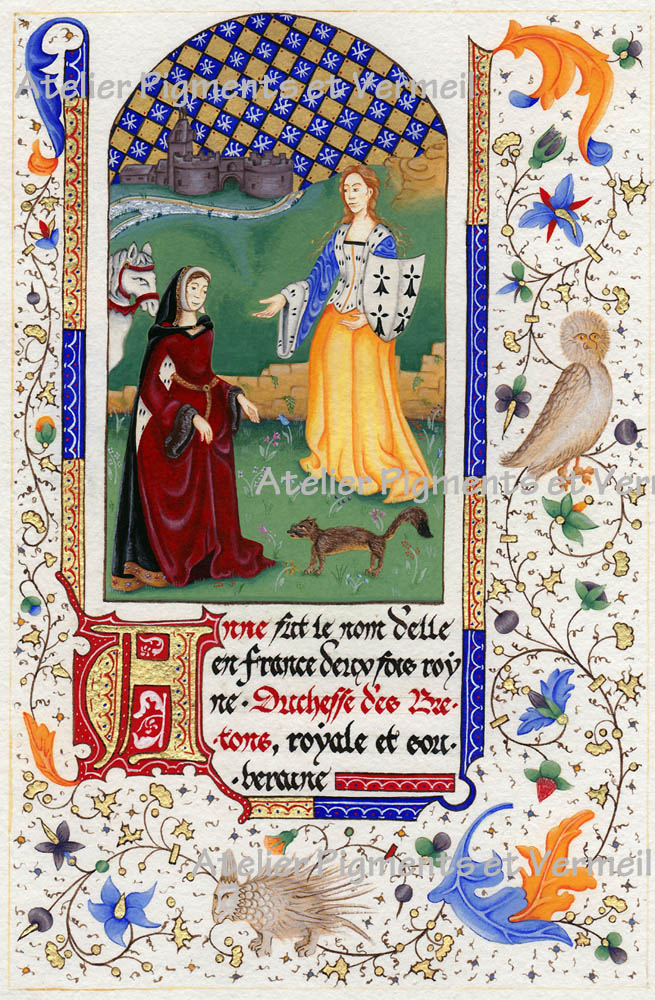 Atelier Pigments et Vermeil
Atelier Pigments et Vermeil
Anne fut le nom d'elle
en France deux fois roy
ne · Duchesse des Bre·
·tons, royale et sou·
·veraine
Atelier Pigments et Vermeil